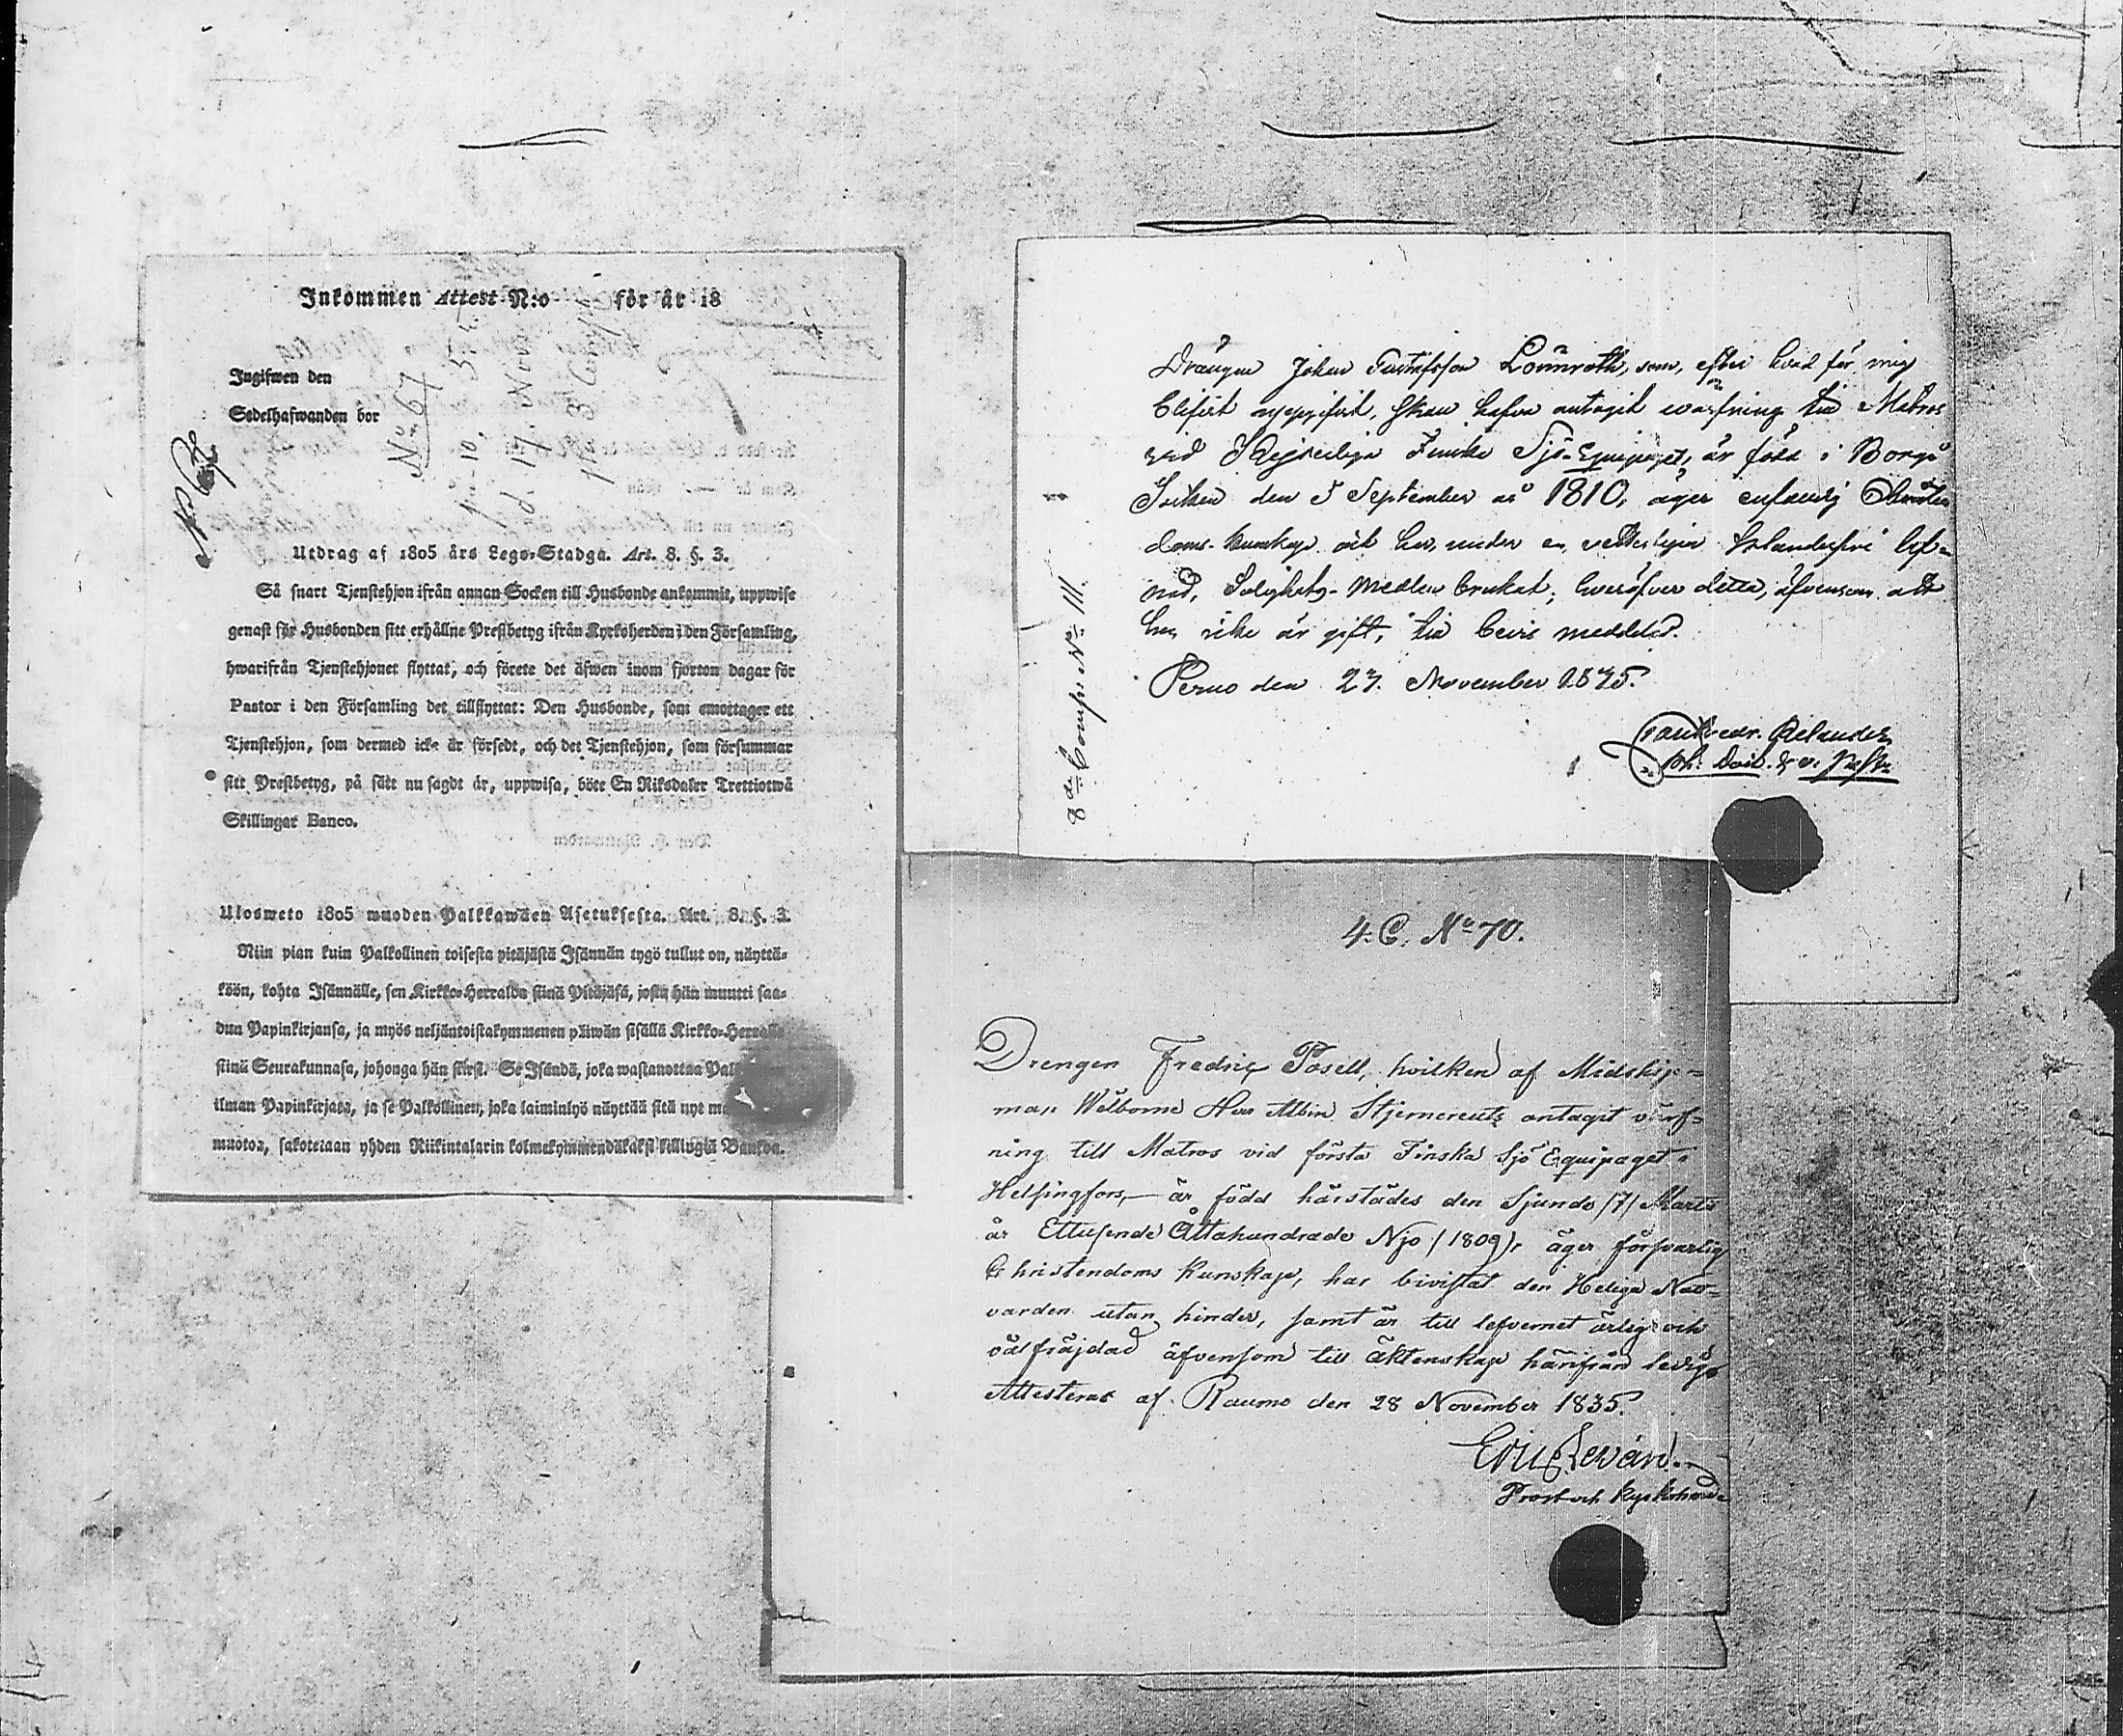 Inkommen Attest N:o för år 18
Ingifwen den
Sedelhafwanden bor
No 67
d. 17. Nov.
No 67
Utdrag af 1805 års Lego-Stadga. Art. 8. §. 3.
Så snart Tjenstehjon ifrån annan Socken till Husbonde ankommit, uppwise
genast för Husbonden sitt erhållne Prestbetyg ifrån Kyrkoherden i den Församling,
hwarifrån Tjenstehjonet flyttat, och förete det äfwen inom fjorton dagar för
Pastor i den Församling det tillflyttat: Den Husbonde, som emottager ett
Tjenstehjon, som dermed icke är försedt, och det Tjenstehjon, som försummar
sitt Prestbetyg, på sätt nu sagdt är, uppwisa, böte En Riksdaler Trettiotwå
Skillingar Banco.
Ulosweto 1805 wuoden Palkkawäen Asetuksesta. Art. 8. §. 3.
Niin pian kuin Palkollinen toisesta pitäjästä Isännän tygö tullut on, näyttä-
köön, kohta Isännälle, sen Kirkko-Herralda siinä Pitäjäsä, josta hän muutti saa-
dun Papinkirjansa, ja myös neljäntoistakymmenen päiwän sisällä Kirkko-Herralle
siinä Seurakunnasa, johonga hän siirsi. Se Isändä, joka wastanottaa
ilman Papinkirjata, ja se Palkollinen, joka laiminlyö näyttää sitä nyt
muotoa, sakotetaan yhden Riikintalarin kolmekymmendäkaksi killingiä Bankoa.
8de Comp. No 111.
Drängen Johan Gustafsson Lönnroth, som, efter hvad för mig
blifvit uppgifvit, skall hafva antagit värfning till Matros
vid Kejserliga Finska Sjö-Equipaget, är född i Borgå
Socken den 5 September år 1810, äger enfaldig Christen
doms-kunskap och har, under en vetterligen oklanderlig lef-
nad, Salighets-Medlen brukat; hvaröfver detta, äfvensom att
han icke är gift, till bevis meddelas.
Perno den 27. November 1835.
4. C. No 70.
Drengen Fredric Pasell, hvilken af Midship-
man Wälborne Herr Albin Stjerncreutz antagit värf-
ning till Matros vid första Finska Sjö Equipaget i
Helsingfors,— är född härstädes den Sjunde /7/ Martii
år Ettusende Åttahundrade Nijo /1809/, äger försvarlig
Christendoms kunskap, har bivistat den Heliga Natt-
varden utan hinder, samt är till lefvernet ärlig och
välfräjdad äfvensom till äktenskap härifrån ledig;
Attesteras af. Raumo den 28 November 1835.
Eric Lewán.
Prost och Kyrkoherde